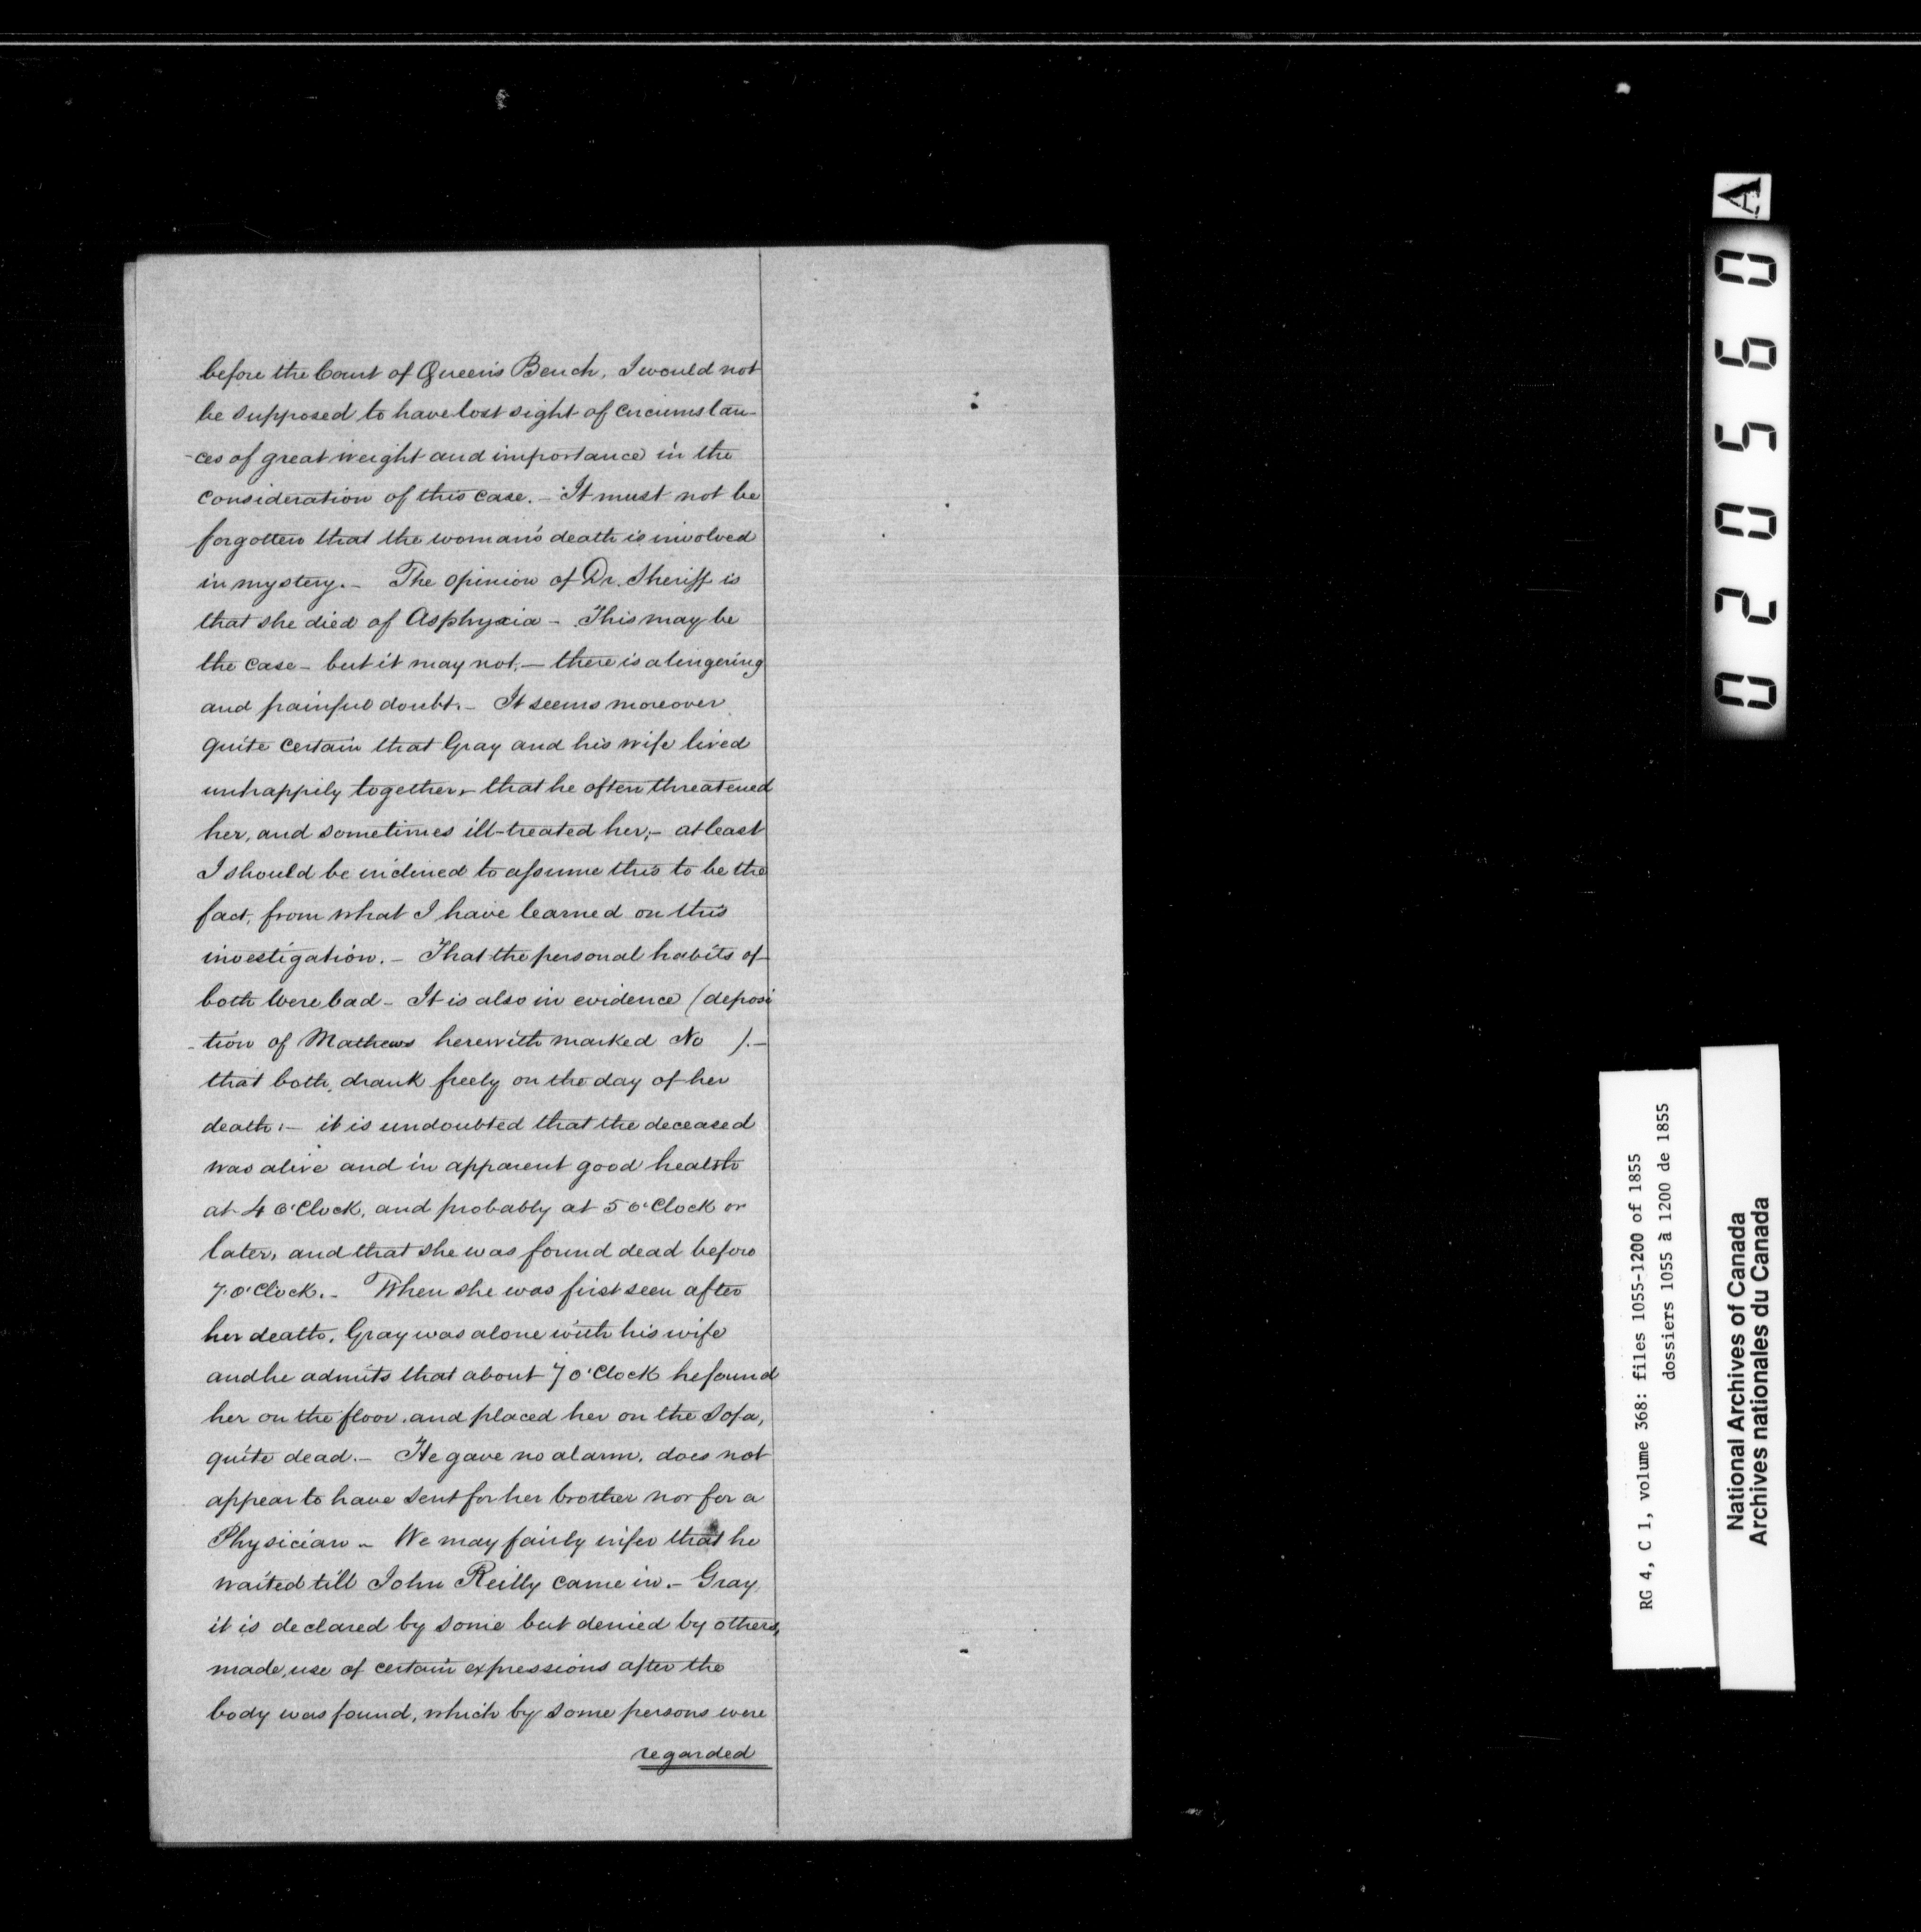 before the Court of Queen's Bench. I would not
be supposed to have lost sight of circumstan-
-ces of great weight and importance in the
consideration of this case. - It must not be
forgotten that the woman's death is involved
in mystery. - The opinion of Dr. Sheriff is
that she died of Asphyxia - This may be
the case - but it may not, - there is a lingering
and painful doubt. - It seems moreover
quite certain that Gray and his wife lived
unhappily together, - that he often threatened
her, and sometimes ill-treated her; - at least
I should be inclined to assume this to be the
fact, from what I have learned on this
investigation. - That the personal habits of
both were bad - It is also in evidence (deposi
-tion of Mathews herewith marked No ). -
that both, drank freely on the day of her
death: - it is undoubted that the deceased
was alive and in apparent good health
at 4 o'Clock, and probably at 5 o'Clock or
later, and that she was found dead before
7 o'Clock. - When she was first seen after
her death, Gray was alone with his wife
and he admits that about 7 o'Clock he found
her on the floor, and placed her on the Sofa,
quite dead. - He gave no alarm, does not
appear to have sent for her brother nor for a
Physician - We may fairly infer that he
waited till John Reilly came in. - Gray,
it is declared by some but denied by others,
made use of certain expressions after the
body was found, which by some persons were
regarded
A
020560
RG 4, C 1, volume 368: files 1055-1200 of 1855
dossiers 1055 à 1200 de 1855
National Archives of Canada
Archives nationales du Canada